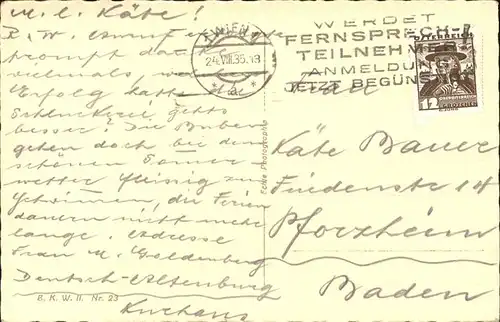 M. l. Käte!
prompt
vielmals
Erfolg hätte
besser! Die Buben
gehen doch bei dem
schönen
wetter fleissig zum
Schwimmen, die Ferien
dauern nicht mehr
lange. Adresse
Frau M. Goldenberg
Deutsch-Altenburg
Kurhaus
B. K. W. II. Nr. 23
Echte Photographie
WIEN
24.VIII.35.
WERDET
FERNSPRECH-
TEILNEHMER
ANMELDU
JETZT BEGÜNS
ÖSTERREICH
12
Frau
Käte Bauer
Friedenstr. 14
Pforzheim
Baden